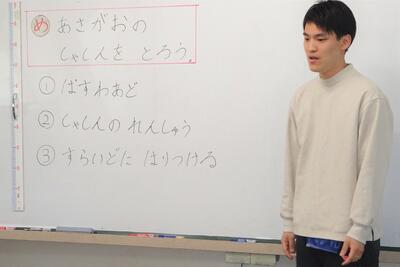 め あさがおの
しゃしんを とろう。
① ぱすわあど
② しゃしんの れんしゅう
③ すらいどに はりつける